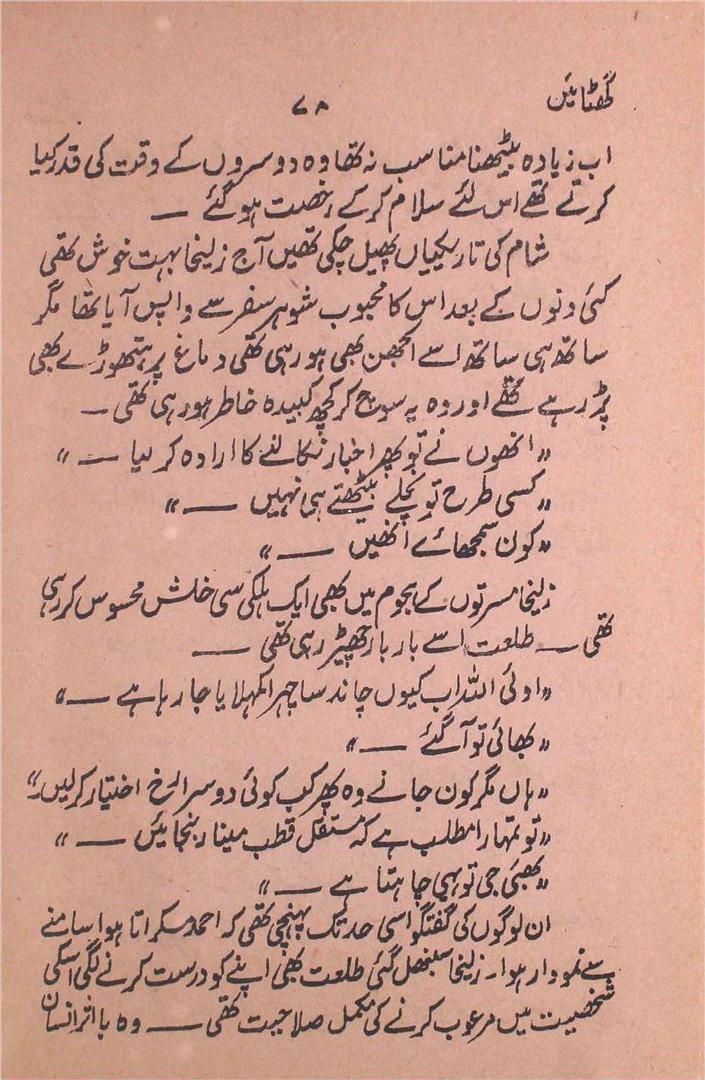 گھٹائیں
۷۸
اب زیادہ بیٹھنا مناسب نہ تھا وہ دوسروں کے وقت کی قدر کیا
کرتے تھے اس لئے سلام کرکے رخصت ہو گئے —
شام کی تاریکیاں پھیل چکی تھیں آج زلیخا بہت خوش تھی
کئی دنوں کے بعد اس کا محبوب شوہر سفر سے واپس آیا تھا مگر
ساتھ ہی ساتھ اسے الجھن بھی ہو رہی تھی دماغ پر ہتھوڑے بھی
پڑ رہے تھے اور وہ یہ سوچ کر کچھ کبیدہ خاطر ہو رہی تھی —
”انھوں نے تو پھر اخبار نکالنے کا ارادہ کر لیا —“
”کسی طرح تو نچلے بیٹھتے ہی نہیں —“
”کون سمجھائے انھیں —“
زلیخا مسرتوں کے ہجوم میں بھی ایک ہلکی سی خلش محسوس کر رہی
تھی — طلعت اسے بار بار چھیڑ رہی تھی —
”اوئی اللہ اب کیوں چاند سا چہرا کمہلایا جا رہا ہے —“
”بھائی تو آ گئے —“
”ہاں مگر کون جانے وہ پھر کب کوئی دوسرا رخ اختیار کر لیں“
”تو تمہارا مطلب ہے کہ مستقل قطب مینار بنجائیں —“
”بھئی جی تو یہی چاہتا ہے —“
ان لوگوں کی گفتگو اسی حد تک پہنچی تھی کہ احمد مسکراتا ہوا سامنے
سے نمودار ہوا۔ زلیخا سنبھل گئی طلعت بھی اپنے کو درست کرنے لگی اسکی
شخصیت میں مرعوب کرنے کی مکمل صلاحیت تھی — وہ با اثر انسان